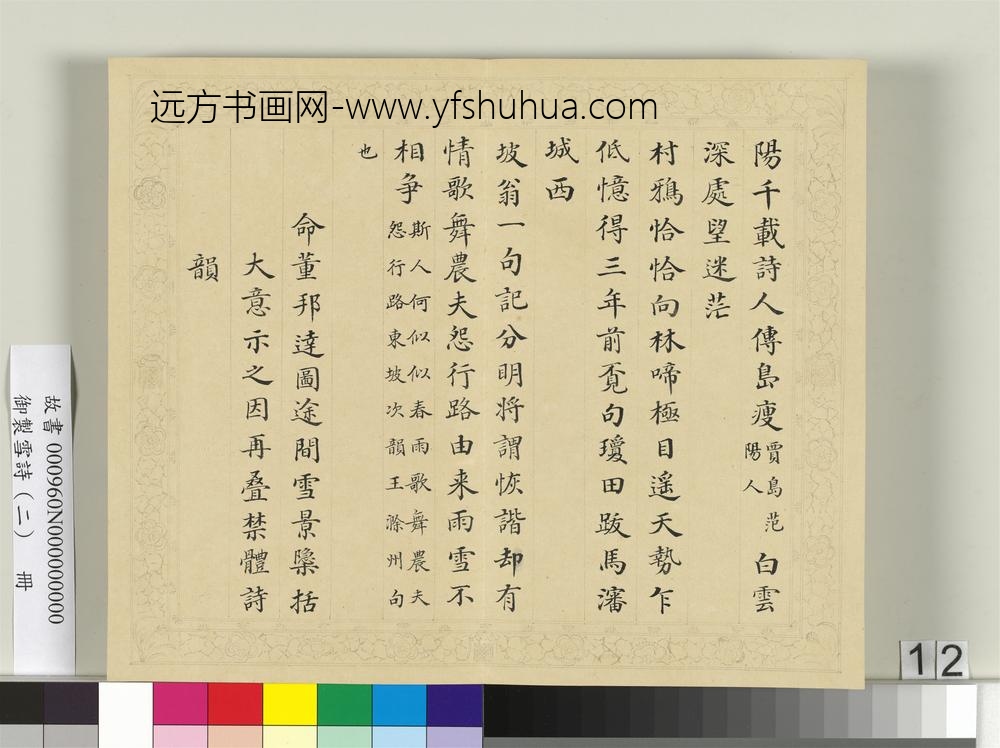 远方书画网-www.yfshuhua.com
陽千載詩人傳島瘦賈島范陽人白雲
深處望迷茫
村鴉恰恰向林啼極目遥天勢乍
低憶得三年前覔句瓊田跋馬瀋
城西
坡翁一句記分明将謂恢諧却有
情歌舞農夫怨行路由来雨雪不
相争斯人何似似春雨歌舞農夫怨行路東坡次韻王滁州句
也
命董邦達圖途間雪景檃括
大意示之因再叠禁體詩
韻
故書 000960N000000000
御製雪詩（二） 冊
12